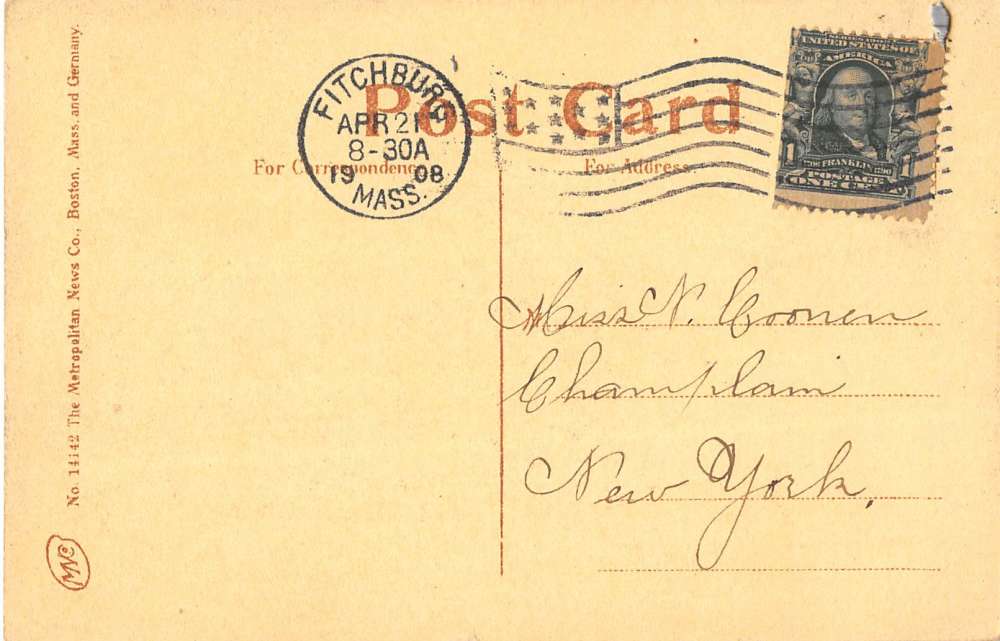 Post Card
For Correspondence
For Address
FITCHBURG
APR 21
8-30A
1908
MASS.
UNITED STATES OF
AMERICA
1706 FRANKLIN 1790
1 POSTAGE 1
ONE CENT
Miss N. Coonen
Champlain
New York.
No. 14142 The Metropolitan News Co., Boston, Mass. and Germany.